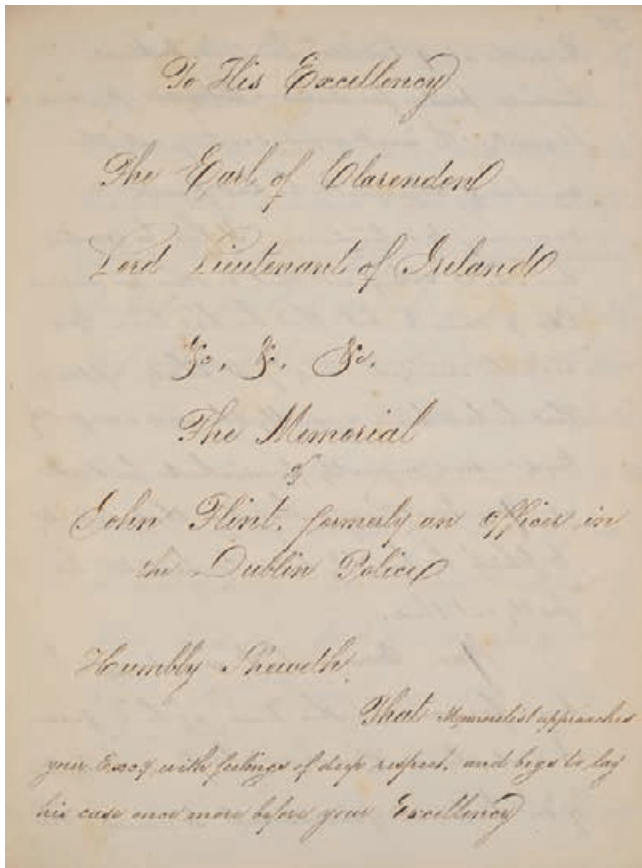 To His Excellency
The Earl of Clarendon
Lord Lieutenant of Ireland
&c, &, &c.
The Memorial
of
John Flint, formerly an officer in
the Dublin Police
Humbly Sheweth.
That Memorialist approaches
your Excy with feelings of deep respect, and begs to lay
his case once more before your Excellency